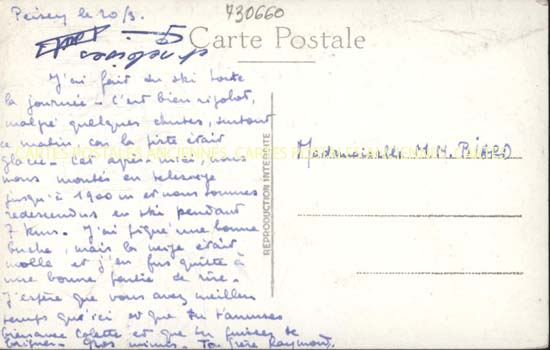 Peisey le 20/3.
730660
Carte Postale
J'ai fait du ski toute
la journée - C'est bien rigolot,
malgé quelques chutes, surtout
ce matin car la piste était
glacée - Cet après-midi, nous
nous montés en télésiège
jusqu'à 1900 m et nous sommes
redescendus en ski pendant
7 kms. J'ai piqué une bonne
buche, mais la neige était
molle et j'en fus quitte à
une bonne partie de rire.
J'espère que vous avez meilleur
temps qu'ici et que tu t'amuses
bien avec Colette et que tu puisses te
baigner - Gros mimis. Ton frère Raymond.
Mademoiselle M.M. BIARD
REPRODUCTION INTERDITE
CARTES POSTALES ANCIENNES